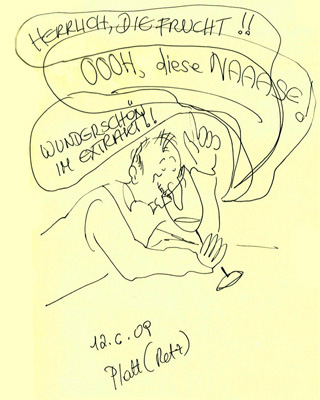 HERRLICH, DIE FRUCHT!!
OOOH, diese NAAASE!
WUNDERSCHÖN
IM EXTRAKT!!
12.6.09
Platt (Retz)